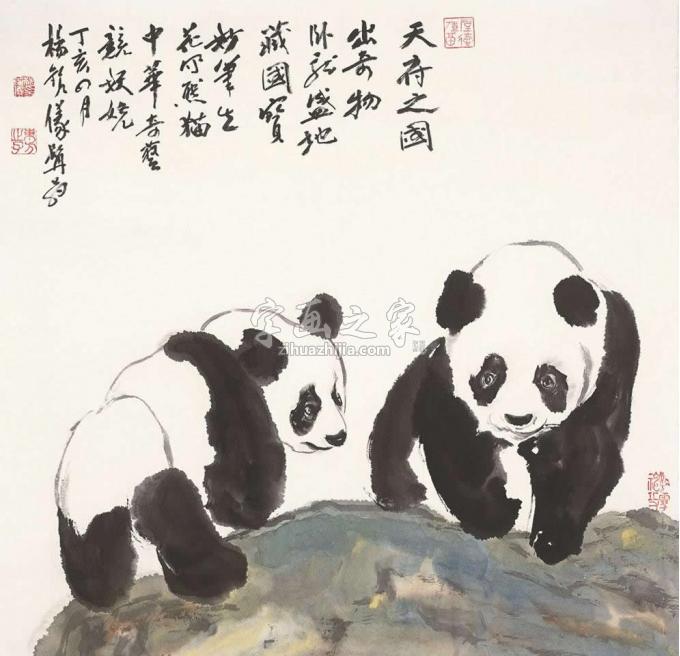 天府之國
出奇物
卧龍盛地
藏國寶
妙筆生
花写熊猫
中華奇藝
競妖嬈
丁亥四月
字画之家
zihuazhijia.com